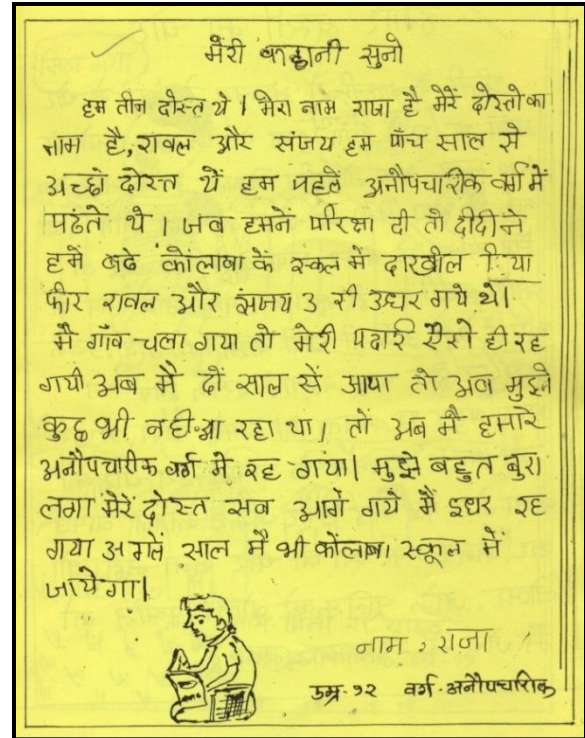 मेरी कहानी सुनो
हम तीन दोस्त थे । मेरा नाम राजा है मेरें दोस्तो का
नाम है, रावल और संजय हम पाँच साल से
अच्छे दोस्त थें हम पहलें अनौपचारीक वर्ग में
पढंते थे । जब हमनें परिक्षा दी तो दीदी ने
हमें बढे कोलाबा कें स्कूल में दाखील
फीर रावल और संजय उधर गये थे।
मै गाँव चला गया तो मेरी पढाई ऐसे ही रह
गयी अब मै दों साल सें आया तो अब मुझे
कुछ भी नही आ रहा था। तों अब मै हमारे
अनौपचारीक वर्ग मे रह गया। मुझे बहुत बुरा
लगा मेरें दोस्त सब आगें गयें मै इधर रह
गया अगलें साल मै भी कोलाबा स्कूल में
जायेगा।
नाम, राजा
उम्र-१२ वर्ग-अनौपचारीक